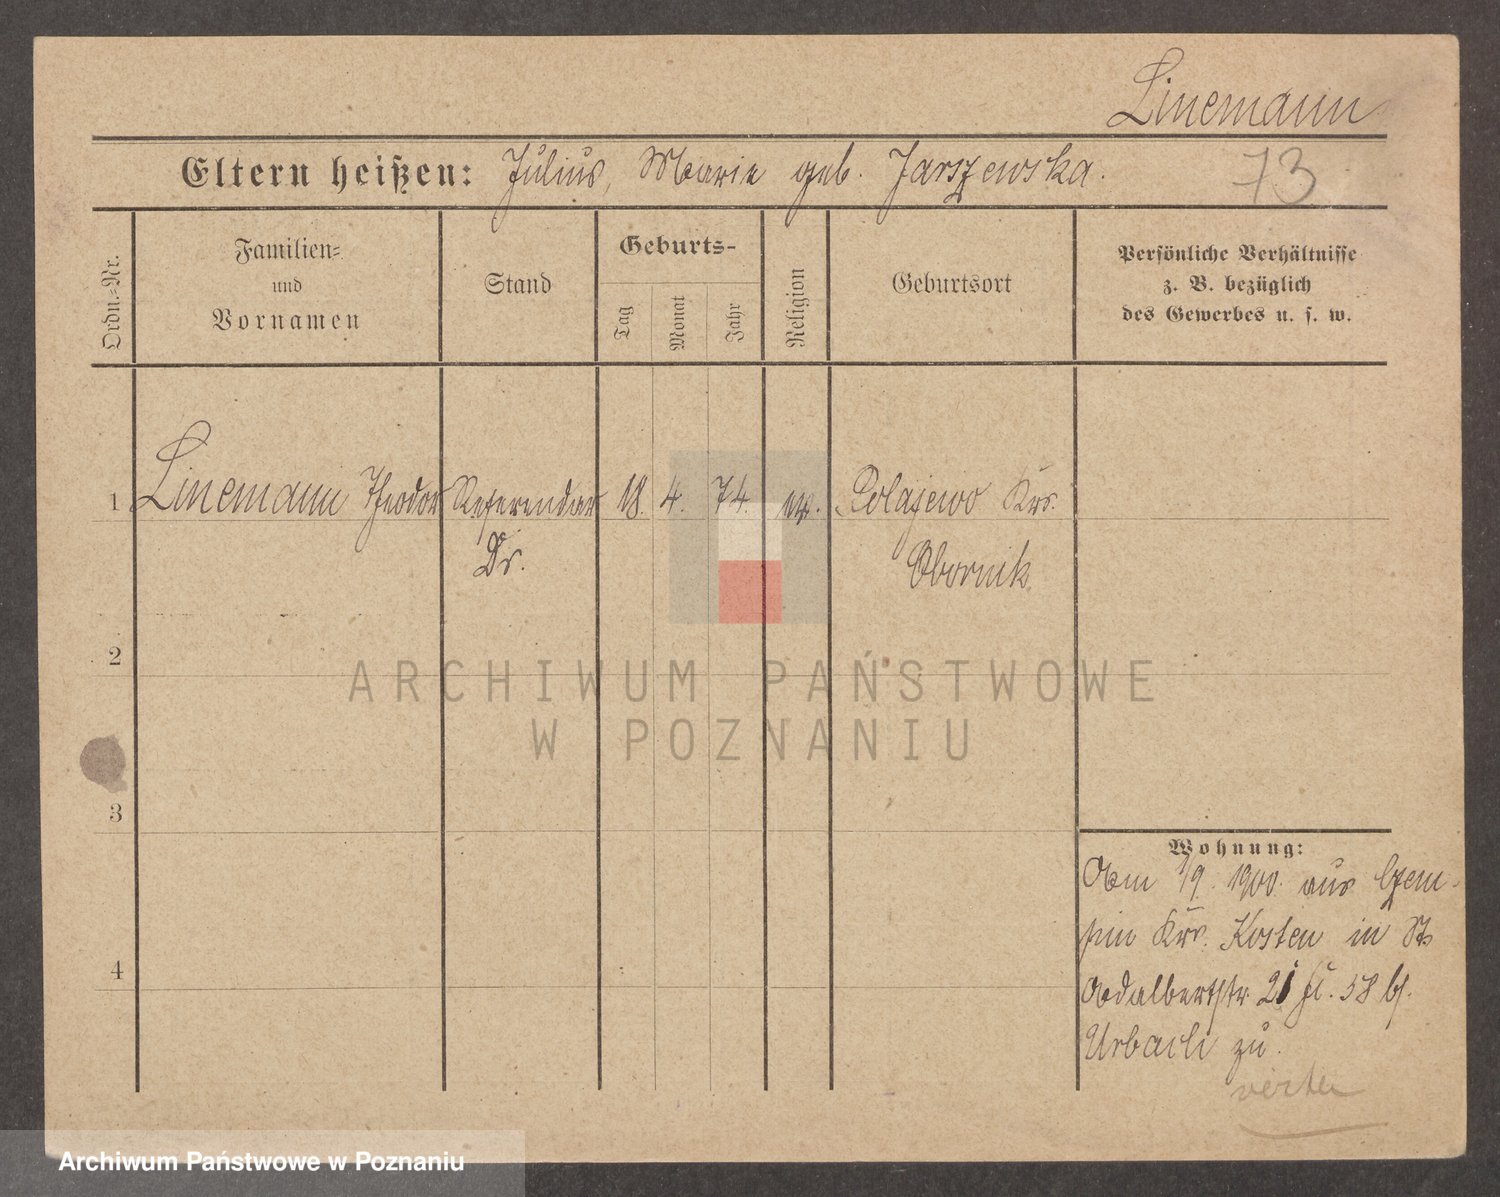 Linemann
Eltern heißen: Julius, Marie geb. Jarszewska.
73
Ordn.-Nr.
Familien-
und
Vornamen
Stand
Geburts-
Tag
Monat
Jahr
Religion
Geburtsort
Persönliche Verhältnisse
z. B. bezüglich
des Gewerbes u. s. w.
1 Linemann Theodor Referendar 18. 4. 74. ev. Polajewo Krs.
Dr.
Obornik.
2
3
4
Wohnung:
Am 1/9. 1900. aus Czem-
pin Krs. Kosten in St.
Adalbertstr. 21 58 bf.
Urbach zu.
verte
ARCHIWUM PAŃSTWOWE
W POZNANIU
Archiwum Państwowe w Poznaniu